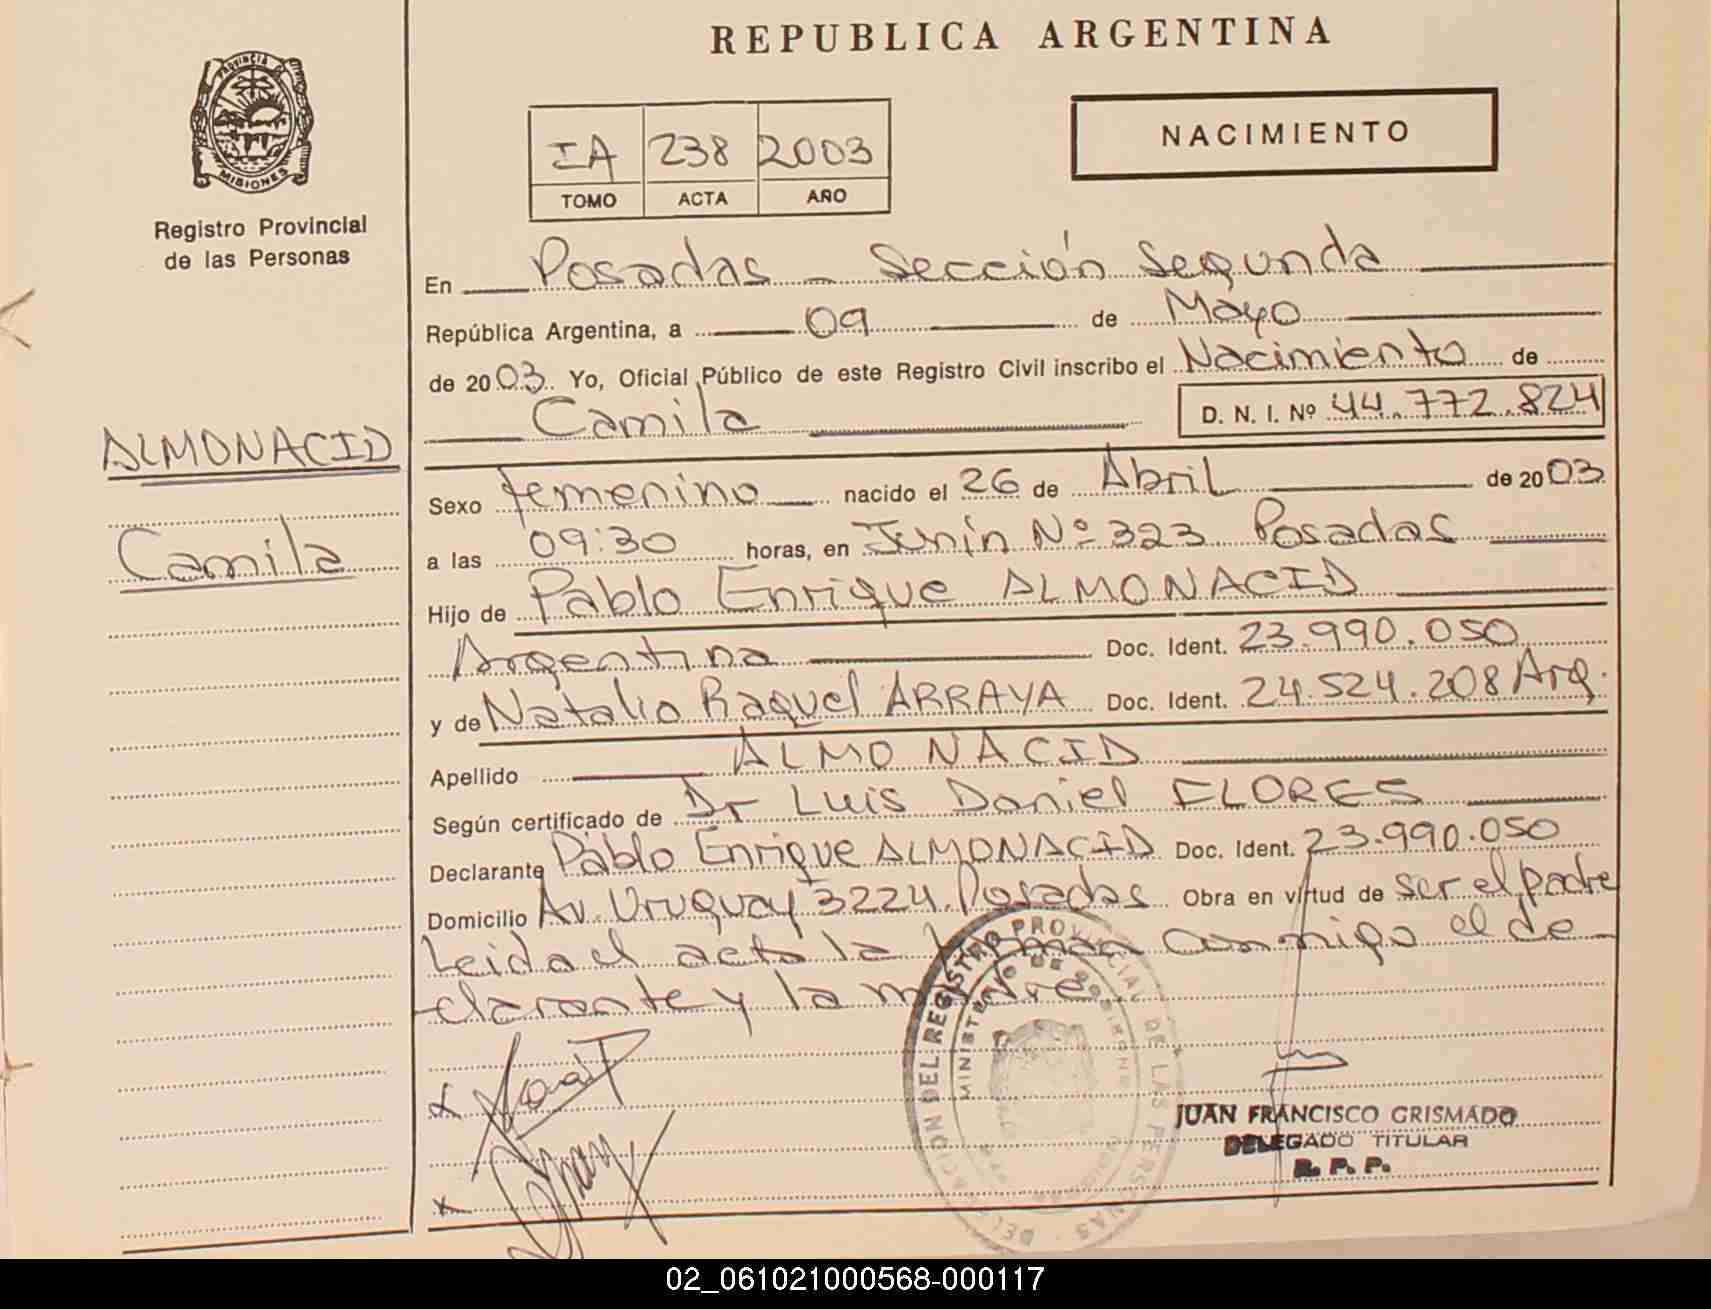 REPUBLICA ARGENTINA
PROVINCIA DE
MISIONES
Registro Provincial
de las Personas
IA 238 2003
TOMO ACTA AÑO
NACIMIENTO
En Posadas - Sección Segunda
República Argentina, a 09 de Mayo
de 2003 Yo, Oficial Público de este Registro Civil inscribo el Nacimiento de
Camila D. N. I. Nº 44.772.824
ALMONACID
Camila
Sexo femenino nacido el 26 de Abril de 2003
a las 09:30 horas, en Junín Nº 323 Posadas
Hijo de Pablo Enrique ALMONACID
Argentina Doc. Ident. 23.990.050
y de Natalia Raquel ARRAYA Doc. Ident. 24.524.208 Arg.
Apellido ALMONACID
Según certificado de Dr Luis Daniel FLORES
Declarante Pablo Enrique ALMONACID Doc. Ident. 23.990.050
Domicilio Av. Uruguay 3224 Posadas Obra en virtud de ser el padre
Leida el acta la firman conmigo el de-
clarante y la madre.
DELEGACION DEL REGISTRO PROVINCIAL DE LAS PERSONAS
MINISTERIO DE GOBIERNO
JUAN FRANCISCO GRISMADO
DELEGADO TITULAR
R. P. P.
02_061021000568-000117